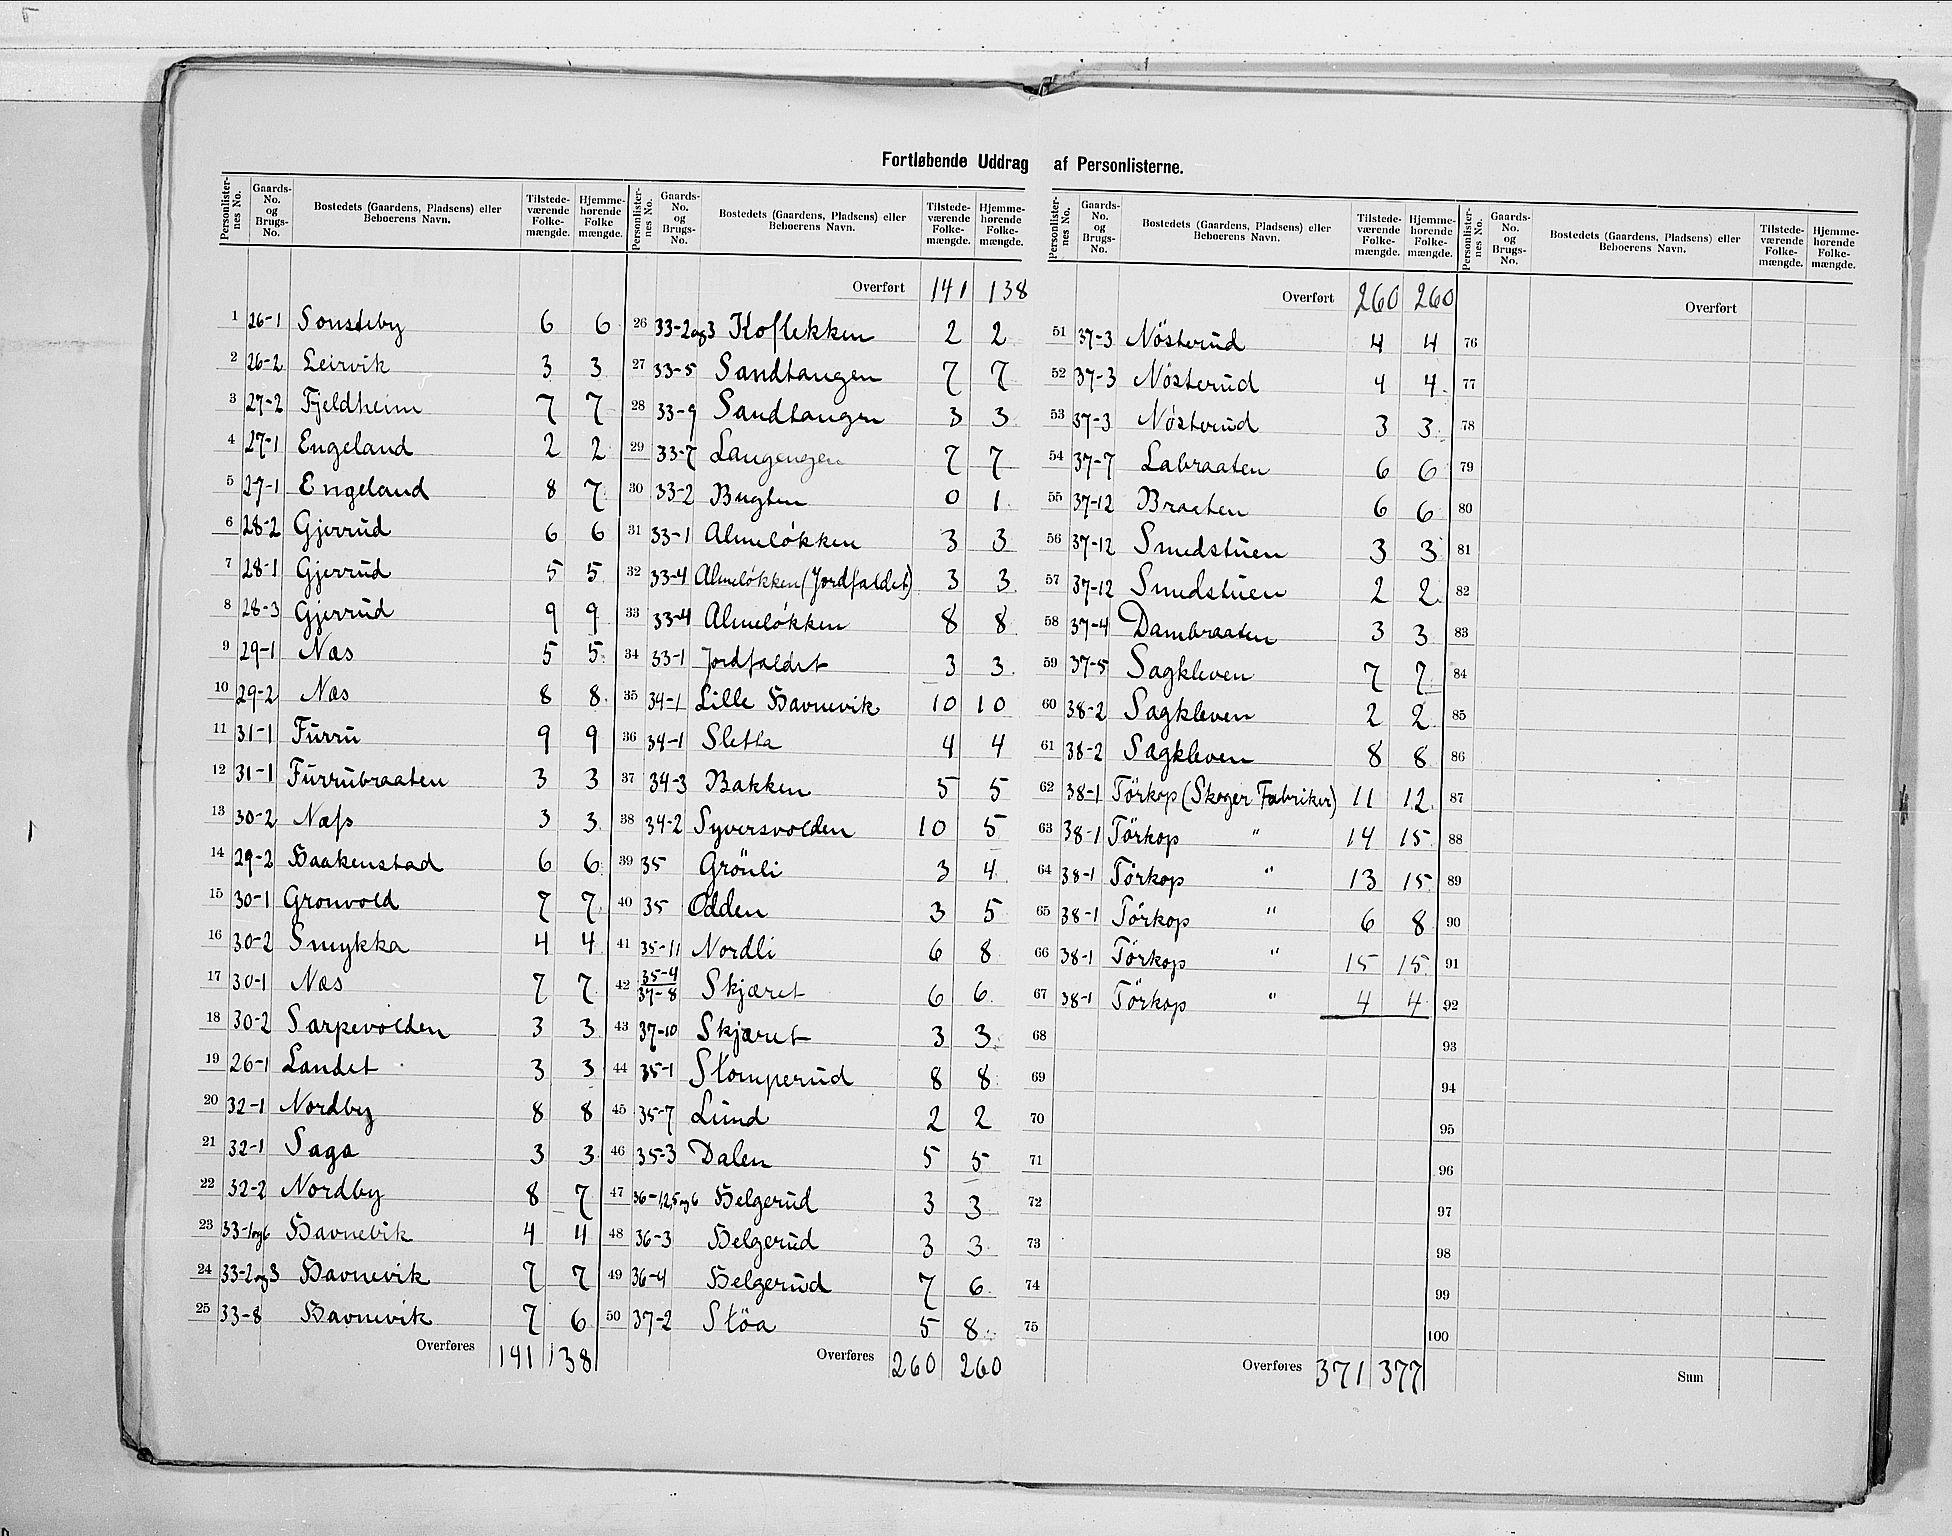 Fortløbende Uddrag af Personlisterne.
Personlister-nes No. Gaards-No. og Brugs-No. Bostedets (Gaardens, Pladsens) eller Beboerens Navn. Tilstede-værende Folke-mængde. Hjemme-hørende Folke mængde.
1 26-1 Sonsteby 6 6
2 26-2 Leirvik 3 3
3 27-2 Fjeldheim 7 7
4 27-1 Engeland 2 2
5 27-1 Engeland 8 7
6 28-2 Gjerrud 6 6
7 28-1 Gjerrud 5 5
8 28-3 Gjerrud 9 9
9 29-1 Næs 5 5
10 29-2 Næs 8 8
11 31-1 Furru 9 9
12 31-1 Furrubraaten 3 3
13 30-2 Næss 3 3
14 29-2 Haakenstad 6 6
15 30-1 Gronvold 7 7
16 30-2 Smykka 4 4
17 30-1 Næs 7 7
18 30-2 Sarpevolden 3 3
19 26-1 Landet 3 3
20 32-1 Nordby 8 8
21 32-1 Saga 3 3
22 32-2 Nordby 8 7
23 33-1og6 Havnevik 4 4
24 33-2og3 Havnevik 7 7
25 33-8 Havnevik 7 6
Overføres 141 138
Personlister-nes No. Gaards-No. og Brugs-No. Bostedets (Gaardens, Pladsens) eller Beboerens Navn. Tilstede-værende Folke-mængde. Hjemme-hørende Folke-mængde.
Overført 141 138
26 33-2og3 Koflekken 2 2
27 33-5 Sandtangen 7 7
28 33-9 Sandtangen 3 3
29 33-7 Langengen 7 7
30 33-2 Bugten 0 1
31 33-1 Almeløkken 3 3
32 33-4 Almeløkken (Jordfaldet) 3 3
33 33-4 Almeløkken 8 8
34 33-1 Jordfaldet 3 3
35 34-1 Lille Havnevik 10 10
36 34-1 Sletta 4 4
37 34-3 Bakken 5 5
38 34-2 Syversvolden 10 5
39 35 Grönli 3 4
40 35 Odden 3 5
41 35-11 Nordli 6 8
42 35-4 37-8 Skjæret 6 6
43 37-10 Skjæret 3 3
44 35-1 Stomperud 8 8
45 35-7 Lund 2 2
46 35-3 Dalen 5 5
47 36-1,2,5og6 Helgerud 3 3
48 36-3 Helgerud 3 3
49 36-4 Helgerud 7 6
50 37-2 Stöa 5 8
Overføres 260 260
Personlister-nes No. Gaards-No. og Brugs-No. Bostedets (Gaardens, Pladsens) eller Beboerens Navn. Tilstede-værende Folke-mængde. Hjemme-hørende Folke-mængde.
Overført 260 260
51 37-3 Nösterud 4 4
52 37-3 Nösterud 4 4
53 37-3 Nösterud 3 3
54 37-7 Labraaten 6 6
55 37-12 Braaten 6 6
56 37-12 Smedstuen 3 3
57 37-12 Smedstuen 2 2
58 37-4 Dambraaten 3 3
59 37-5 Sagkleven 7 7
60 38-2 Sagkleven 2 2
61 38-2 Sagkleven 8 8
62 38-1 Törkop (Skoger Fabriker) 11 12
63 38-1 Törkop " 14 15
64 38-1 Törkop " 13 15
65 38-1 Törkop " 6 8
66 38-1 Törkop " 15 15
67 38-1 Törkop " 4 4
68
69
70
71
72
73
74
75
Overføres 371 377
Personlister-nes No. Gaards-No. og Brugs-No. Bostedets (Gaardens, Pladsens) eller Beboerens Navn. Tilstede-værende Folke-mængde. Hjemme-hørende Folke-mængde.
Overført
76
77
78
79
80
81
82
83
84
85
86
87
88
89
90
91
92
93
94
95
96
97
98
99
100
Sum